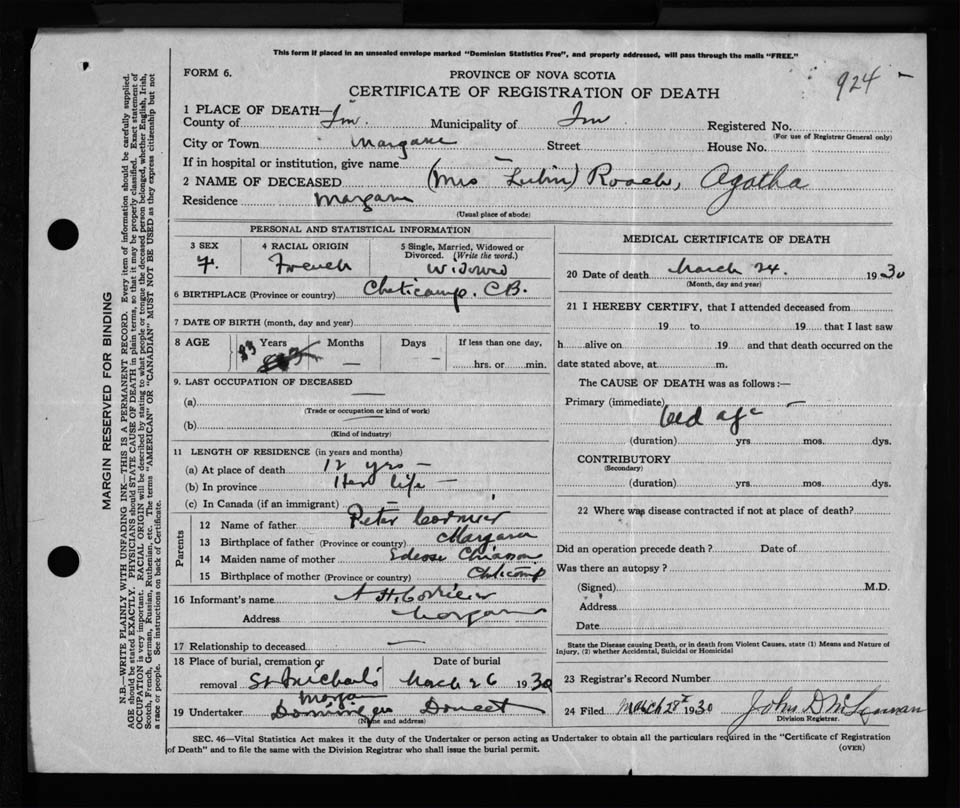 This form if placed in an unsealed envelope marked "Dominion Statistics Free", and properly addressed, will pass through the mails "FREE."
FORM 6.
PROVINCE OF NOVA SCOTIA
924 -
CERTIFICATE OF REGISTRATION OF DEATH
1 PLACE OF DEATH—
County of Inv. Municipality of Inv Registered No.
(For use of Registrar General only)
City or Town Margaree Street House No.
If in hospital or institution, give name —
2 NAME OF DECEASED (Mrs Lubin) Roach, Agatha
Residence Margaree
(Usual place of abode)
PERSONAL AND STATISTICAL INFORMATION
3 SEX 4 RACIAL ORIGIN 5 Single, Married, Widowed or Divorced. (Write the word.)
F. French Widowed
6 BIRTHPLACE (Province or country) Cheticamp. C.B.
7 DATE OF BIRTH (month, day and year)
8 AGE 83 Years Months — Days — If less than one day, hrs. or min.
9. LAST OCCUPATION OF DECEASED
(a) —
(Trade or occupation or kind of work)
(b) —
(Kind of industry)
11 LENGTH OF RESIDENCE (in years and months)
(a) At place of death 12 yrs —
(b) In province Her life —
(c) In Canada (if an immigrant) —
Parents
12 Name of father Peter Cormier
13 Birthplace of father (Province or country) Margaree
14 Maiden name of mother Chiasson
15 Birthplace of mother (Province or country) Cheticamp
16 Informant's name A H Cormier
Address Margaree
17 Relationship to deceased —
18 Place of burial, cremation or removal St Michael's Margaree Date of burial March 26 1930
19 Undertaker Doucet
(Name and address)
MEDICAL CERTIFICATE OF DEATH
20 Date of death March 24. 1930
(Month, day and year)
21 I HEREBY CERTIFY, that I attended deceased from
19 to 19 that I last saw
h alive on 19 and that death occurred on the
date stated above, at m.
The CAUSE OF DEATH was as follows:—
Primary (immediate) old age —
(duration) yrs. mos. dys.
CONTRIBUTORY
(Secondary)
(duration) yrs. mos. dys.
22 Where was disease contracted if not at place of death?
Did an operation precede death? Date of
Was there an autopsy?
(Signed) M.D.
Address
Date
State the Disease causing Death, or in death from Violent Causes, state (1) Means and Nature of
Injury, (2) whether Accidental, Suicidal or Homicidal
23 Registrar's Record Number
24 Filed March 28th 1930 John D McLennan
Division Registrar.
SEC. 46—Vital Statistics Act makes it the duty of the Undertaker or person acting as Undertaker to obtain all the particulars required in the "Certificate of Registration
of Death" and to file the same with the Division Registrar who shall issue the burial permit.
(OVER)
MARGIN RESERVED FOR BINDING
N.B.—WRITE PLAINLY WITH UNFADING INK—THIS IS A PERMANENT RECORD. Every item of information should be carefully supplied.
AGE should be stated EXACTLY. PHYSICIANS should STATE CAUSE OF DEATH in plain terms, so that it may be properly classified. Exact statement of
OCCUPATION is very important. RACIAL ORIGIN will be described by stating to what people or tongue the deceased person belonged, whether English, Irish,
Scotch, French, German, Russian, Ruthenian, etc. The terms "AMERICAN" OR "CANADIAN" MUST NOT BE USED as they express citizenship but not
a race or people. See instructions on back of Certificate.